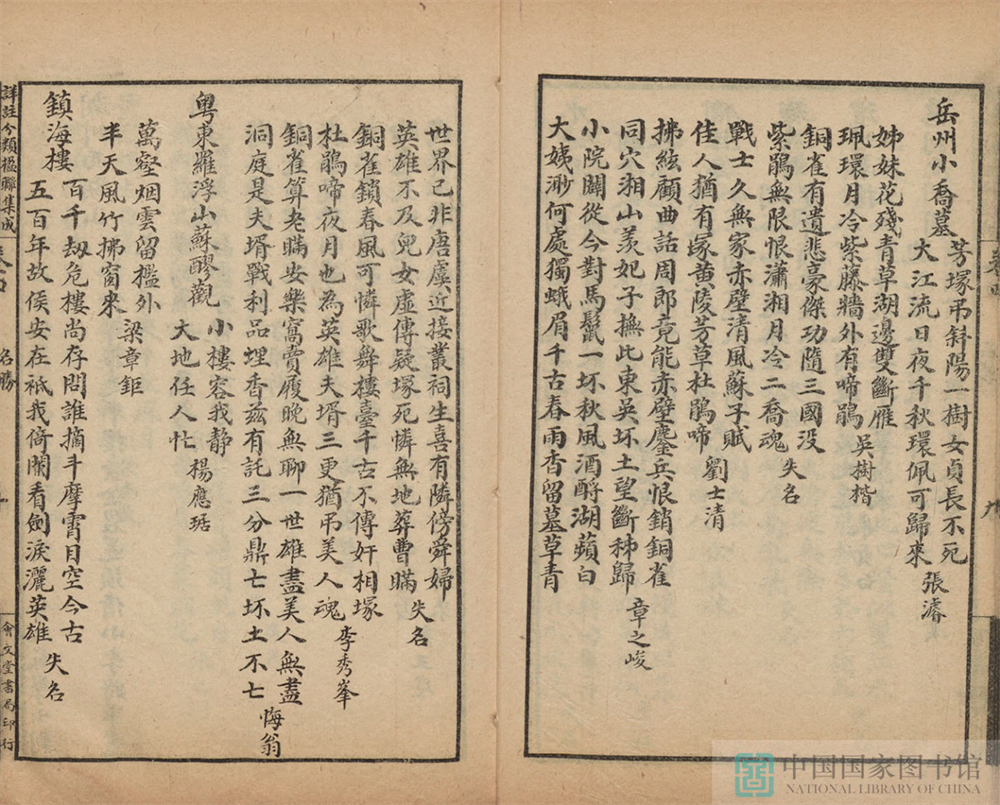 岳州小喬墓
芳塚弔斜陽一樹女貞長不死
大江流日夜千秋環佩可歸來 張濬
姊妹花殘青草湖邊雙斷雁
珮環月冷紫藤牆外有啼鵑 吳樹楷
銅雀有遺悲豪傑功隨三國沒
紫鵑無限恨瀟湘月冷二喬魂 失名
戰士久無家赤壁清風蘇子賦
佳人猶有塚黃陵芳草杜鵑啼 劉士清
拂絃顧曲話周郎竟能赤壁鏖兵恨銷銅雀
同穴湘山羨妃子撫此東吳坏土望斷秭歸 章之峻
小院闢從今對馬鬣一坏秋風酒酹湖蘋白
大姨渺何處獨蛾眉千古春雨香留墓草青
世界已非唐虞近接叢祠生喜有隣傍舜婦
英雄不及兒女虛傳疑塚死憐無地葬曹瞞 失名
銅雀鎖春風可憐歌舞樓臺千古不傳奸相塚
杜鵑啼夜月也為英雄夫壻三更猶弔美人魂 李秀峯
銅雀算老瞞安樂窩賣履晚無聊一世雄盡美人無盡
洞庭是夫壻戰利品埋香茲有託三分鼎七坏土不七 悔翁
粵東羅浮山蘇醪觀
小樓容我靜
大地任人忙 楊應琚
萬壑烟雲留檻外
半天風竹拂窗來 梁章鉅
鎮海樓
百千劫危樓尚存問誰摘斗摩霄目空今古
五百年故侯安在祗我倚闌看劍淚灑英雄 失名
詳註分類楹聯集成
名勝
十
會文堂書局印行
九
中国国家图书馆
NATIONAL LIBRARY OF CHINA